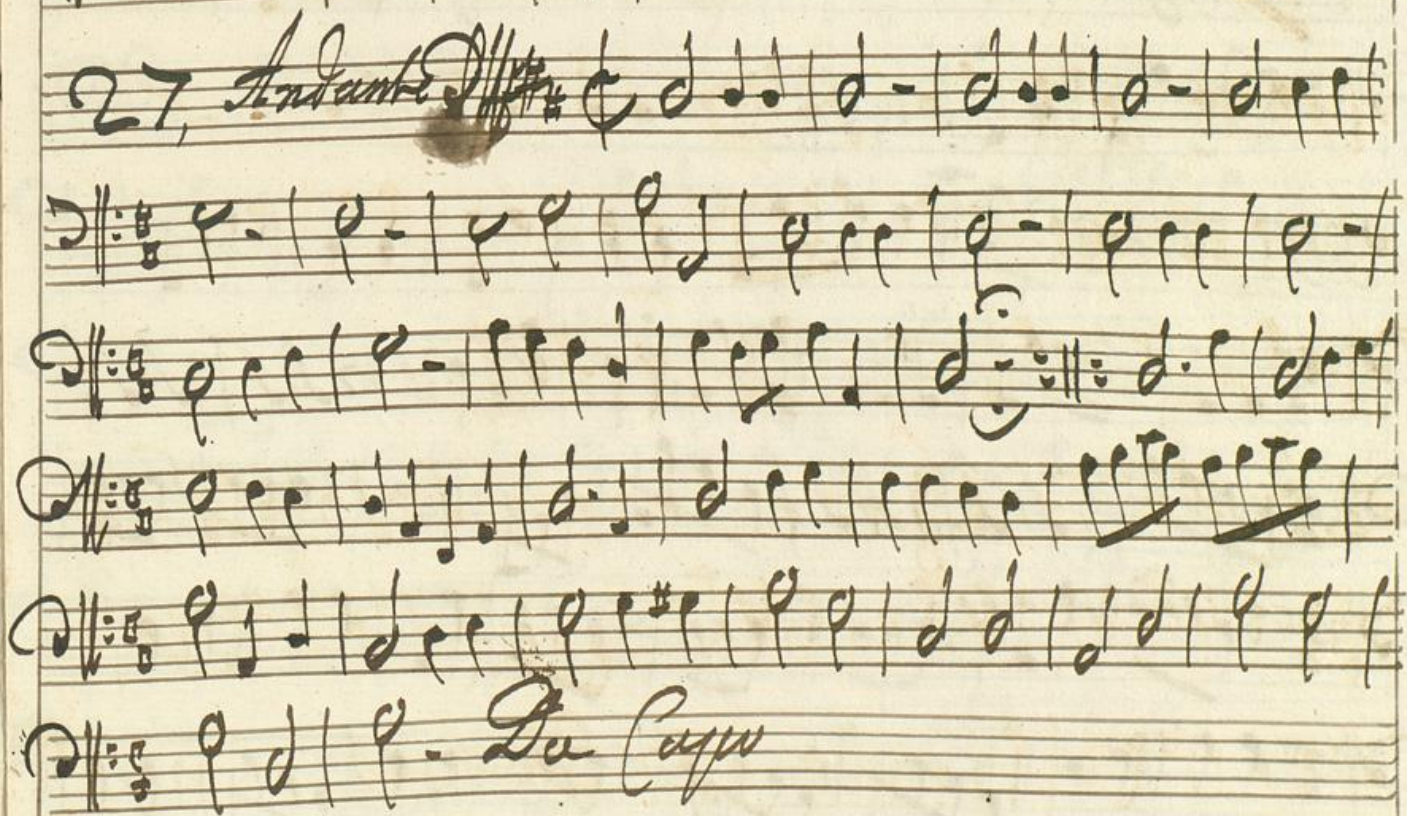 27, Andante
Da Capo